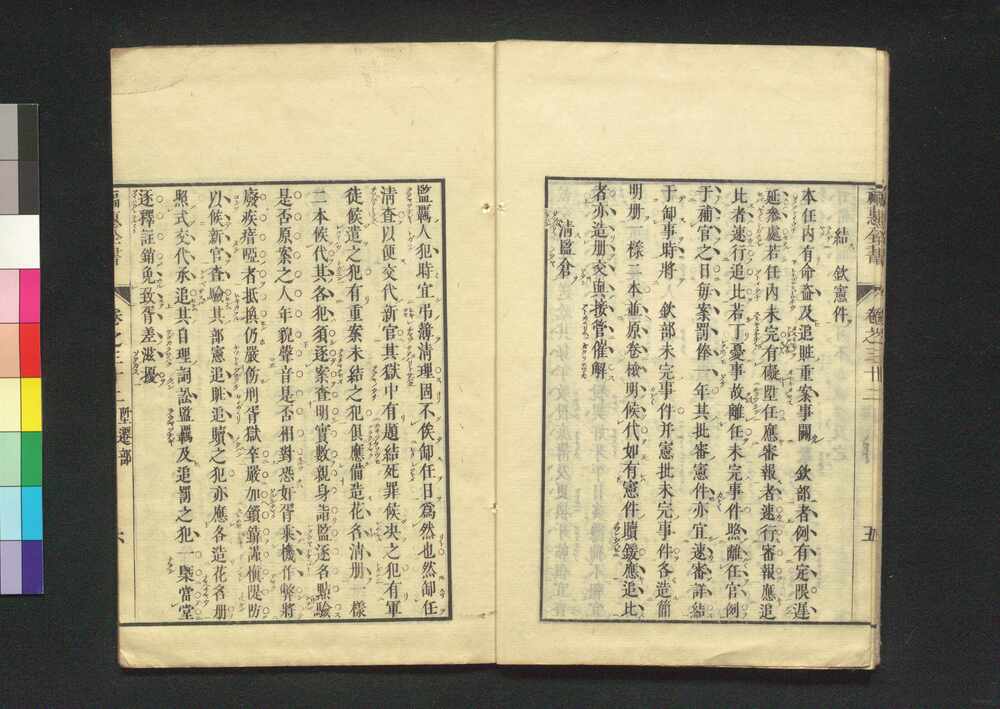 福惠全書 卷之三十二 五
結 欽憲件
本任內有命盜及追贓重案事關 欽部者例有定限遲
延參處若任內未完有礙陞任應審報者速行審報應追
比者速行追比若丁憂事故離任未完事件照離任官例
于補官之日每案罰俸一年其批審憲件亦宜速審詳結
于卸事時將 欽部未完事件并憲批未完事件各造簡
明册一樣二本並原卷檢明候代如有憲件贖鍰應追比
者亦造册交與接管催解
清監倉
監羈人犯時宜吊簿清理固不俟卸任日爲然也然卸任
清查以便交代新官其獄中有題結死罪候決之犯有軍
徒候遣之犯有重案未結之犯俱應備造花名清册一樣
二本候代其各犯須逐案查明實數親身詣監逐名點驗
是否原案之人年貌聲音是否相對恐奸胥乘機作弊將
廢疾瘖啞者抵換仍嚴飭刑胥獄卒嚴加鎖鑰謹愼隄防
以候新官查驗其部憲追贓追贖之犯亦應各造花名册
照式交代承追其自理詞訟監羈及追罰之犯一槩當堂
逐釋註銷免致胥差滋擾
福惠全書 卷之三十二 陞遷部 六